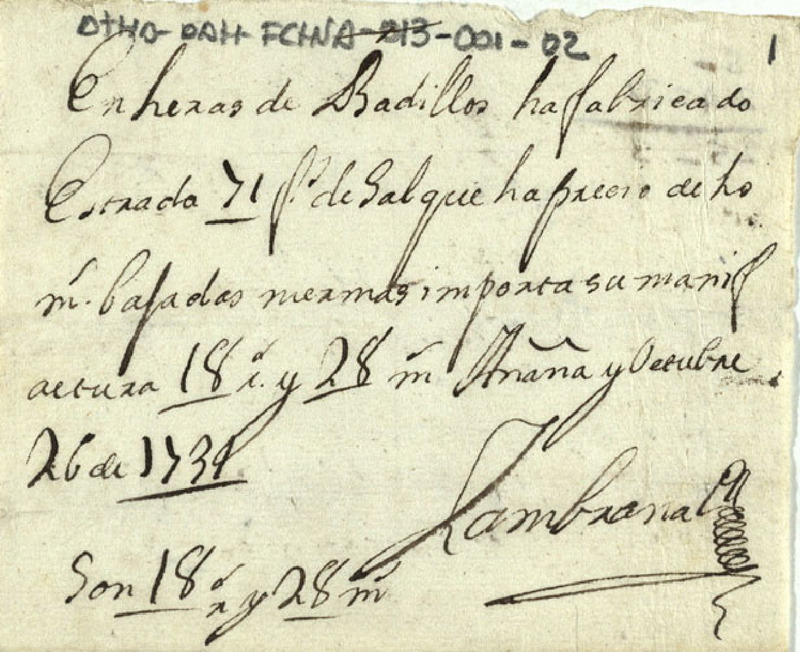 OTHA-DAH-FCHNA-213-001-02
1
En heras de Badillos ha fabricado
Estrada 71 f.s de Sal que ha precio de ho
m.s bajadas mermas importa su manif
actura 18 r.s y 28 ms Añana y Octubre
26 de 1731
Zambrana
Son 18 rs y 28 ms